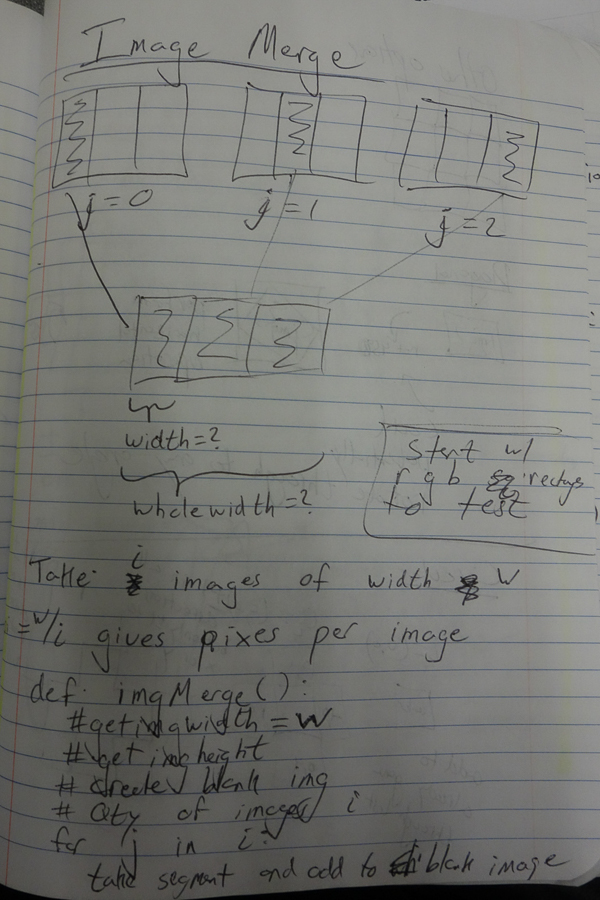 Image Merge
j=0
j=1
j=2
width=?
whole width=?
Start w/
rgb
to test
Take i images of width w
=w/i gives pixes per image
def imgMerge():
#get img width = w
#get img height
# create blank img
# Qty of images i
for j in i:
take segment and add to blank image